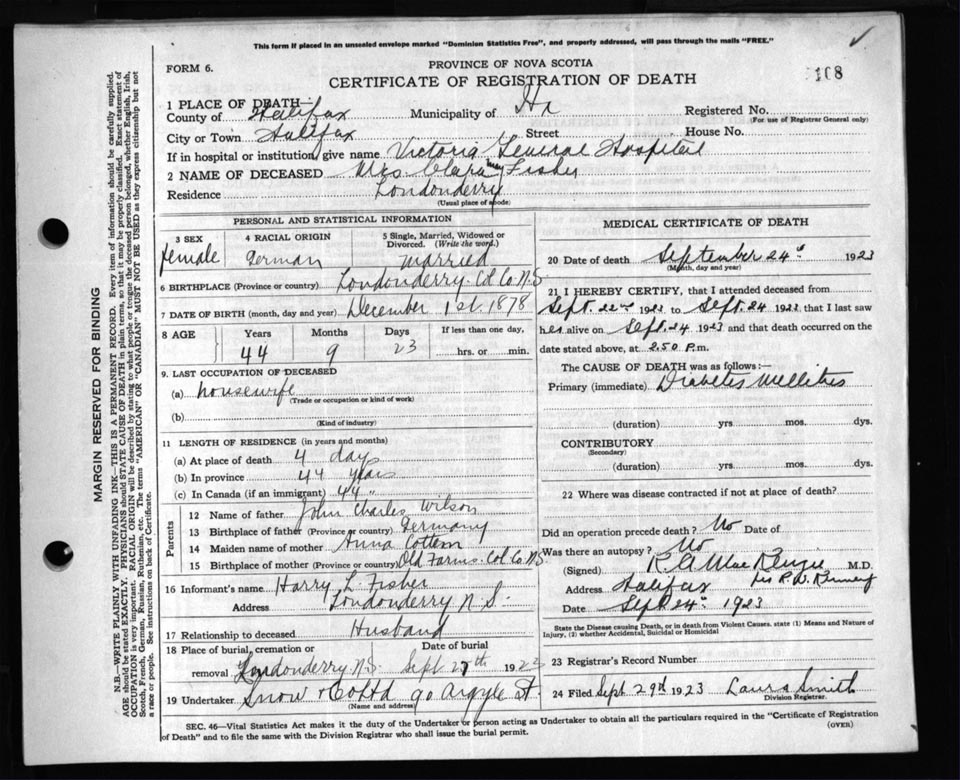 This form if placed in an unsealed envelope marked "Dominion Statistics Free", and properly addressed, will pass through the mails "FREE."
FORM 6.
PROVINCE OF NOVA SCOTIA
CERTIFICATE OF REGISTRATION OF DEATH
108
1 PLACE OF DEATH—
County of Halifax Municipality of Hx Registered No.
(For use of Registrar General only)
City or Town Halifax Street House No.
If in hospital or institution, give name Victoria General Hospital
2 NAME OF DECEASED Mrs. Clara Fisher
Residence Londonderry
(Usual place of abode)
PERSONAL AND STATISTICAL INFORMATION
3 SEX
female
4 RACIAL ORIGIN
German
5 Single, Married, Widowed or Divorced. (Write the word.)
married
6 BIRTHPLACE (Province or country) Londonderry Col. Co. N.S.
7 DATE OF BIRTH (month, day and year) December 1st. 1878
8 AGE
Years Months Days If less than one day,
44 9 23 hrs. or min.
9. LAST OCCUPATION OF DECEASED
(a) housewife
(Trade or occupation or kind of work)
(b)
(Kind of industry)
11 LENGTH OF RESIDENCE (in years and months)
(a) At place of death 4 days
(b) In province 44 years
(c) In Canada (if an immigrant) 44 "
Parents
12 Name of father John Charles Wilson
13 Birthplace of father (Province or country) Germany
14 Maiden name of mother Anna
15 Birthplace of mother (Province or country) Old Farms. Col. Co. N.S.
16 Informant's name Harry L. Fisher
Address Londonderry N.S.
17 Relationship to deceased Husband
18 Place of burial, cremation or removal Londonderry N.S.
Date of burial
Sept. 27th 1923
19 Undertaker Snow & Co Ltd 90 Argyle St.
(Name and address)
MEDICAL CERTIFICATE OF DEATH
20 Date of death September 24th 1923
(Month, day and year)
21 I HEREBY CERTIFY, that I attended deceased from
Sept. 22nd to Sept. 24 that I last saw
her alive on Sept. 24 1923 and that death occurred on the
date stated above, at 2.50 P.m.
The CAUSE OF DEATH was as follows:—
Primary (immediate) Diabetes Mellitus
(duration) yrs. mos. dys.
CONTRIBUTORY
(Secondary)
(duration) yrs. mos. dys.
22 Where was disease contracted if not at place of death?
Did an operation precede death? No Date of
Was there an autopsy? No
(Signed) M.D.
Address Halifax
Date Sept 24th 1923
State the Disease causing Death, or in death from Violent Causes. state (1) Means and Nature of Injury, (2) whether Accidental, Suicidal or Homicidal
23 Registrar's Record Number
24 Filed Sept 29th 1923 Laura Smith
Division Registrar.
SEC. 46—Vital Statistics Act makes it the duty of the Undertaker or person acting as Undertaker to obtain all the particulars required in the "Certificate of Registration
of Death" and to file the same with the Division Registrar who shall issue the burial permit.
(OVER)
MARGIN RESERVED FOR BINDING
N.B.—WRITE PLAINLY WITH UNFADING INK—THIS IS A PERMANENT RECORD. Every item of information should be carefully supplied.
AGE should be stated EXACTLY. PHYSICIANS should STATE CAUSE OF DEATH in plain terms, so that it may be properly classified. Exact statement of
OCCUPATION is very important. RACIAL ORIGIN will be described by stating to what people or tongue the deceased person belonged, whether English, Irish,
Scotch, French, German, Russian, Ruthenian, etc. The terms "AMERICAN" OR "CANADIAN" MUST NOT BE USED as they express citizenship but not
a race or people. See instructions on back of Certificate.